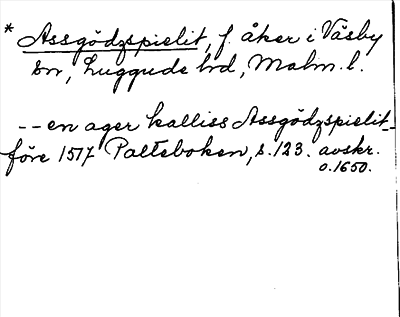 * Assgödzspielit, f. åker i Väsby
sn, Luggude hd, Malm. l.
-- en ager kalliss Assgödzspielit_
före 1517 Palteboken, s. 123. avskr.
o. 1650.